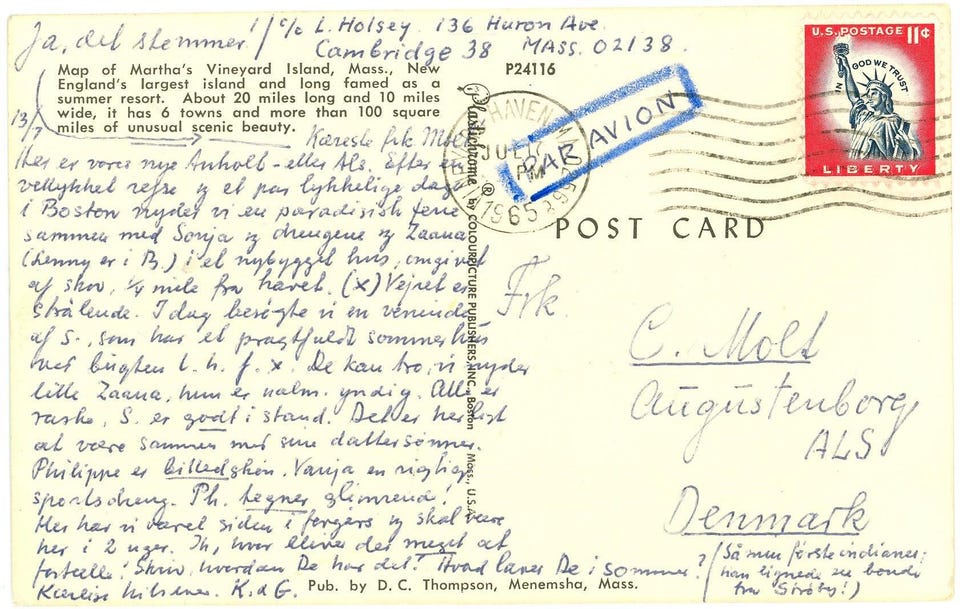 Ja, det stemmer! c/o L. Holsey. 136 Huron Ave.
Cambridge 38 MASS. 02138.
Map of Martha's Vineyard Island, Mass., New
England's largest island and long famed as a
summer resort. About 20 miles long and 10 miles
wide, it has 6 towns and more than 100 square
miles of unusual scenic beauty.
13/7
Kæreste frk Molt
Her er vores nye Anholt - eller Als. Efter en
vellykket rejse og et par lykkelige dage
i Boston nyder vi en paradisisk ferie
sammen med Sonja og drengene og Zaana
(Lenny er i B.) i et nybygget hus, omgivet
af skov, 1/4 mile fra havet. (x) Vejret er
strålende. I dag besøgte vi en veninde
af S., som har et pragtfuldt sommerhus
ved bugten t. h. f. x. De kan tro, vi nyder
lille Zaana, hun er nalm. yndig. Alle er
raske, S. er godt i stand. Det er herligt
at være sammen med sine dattersønner.
Philippe er billedskøn. Vanja en rigtig
sportsdreng. Ph. tegner glimrende!
Her har vi været siden i forgårs og skal være
her i 2 uger. Ih, hvor bliver der meget at
fortælle! Skriv, hvordan De har det! Hvad laver De i sommer?
Kærlige hilsener. K. & G.
(Så min første indianer;
han lignede en bonde
fra Strøby!)
P24116
Plastichrome ® by COLOURPICTURE PUBLISHERS, INC., Boston Mass., U.S.A.
HAVEN
JUL 17
PM
1965
PAR AVION
U.S. POSTAGE 11¢
IN GOD WE TRUST
LIBERTY
POST CARD
Frk.
C. Molt
Augustenborg
ALS
Denmark
Pub. by D. C. Thompson, Menemsha, Mass.